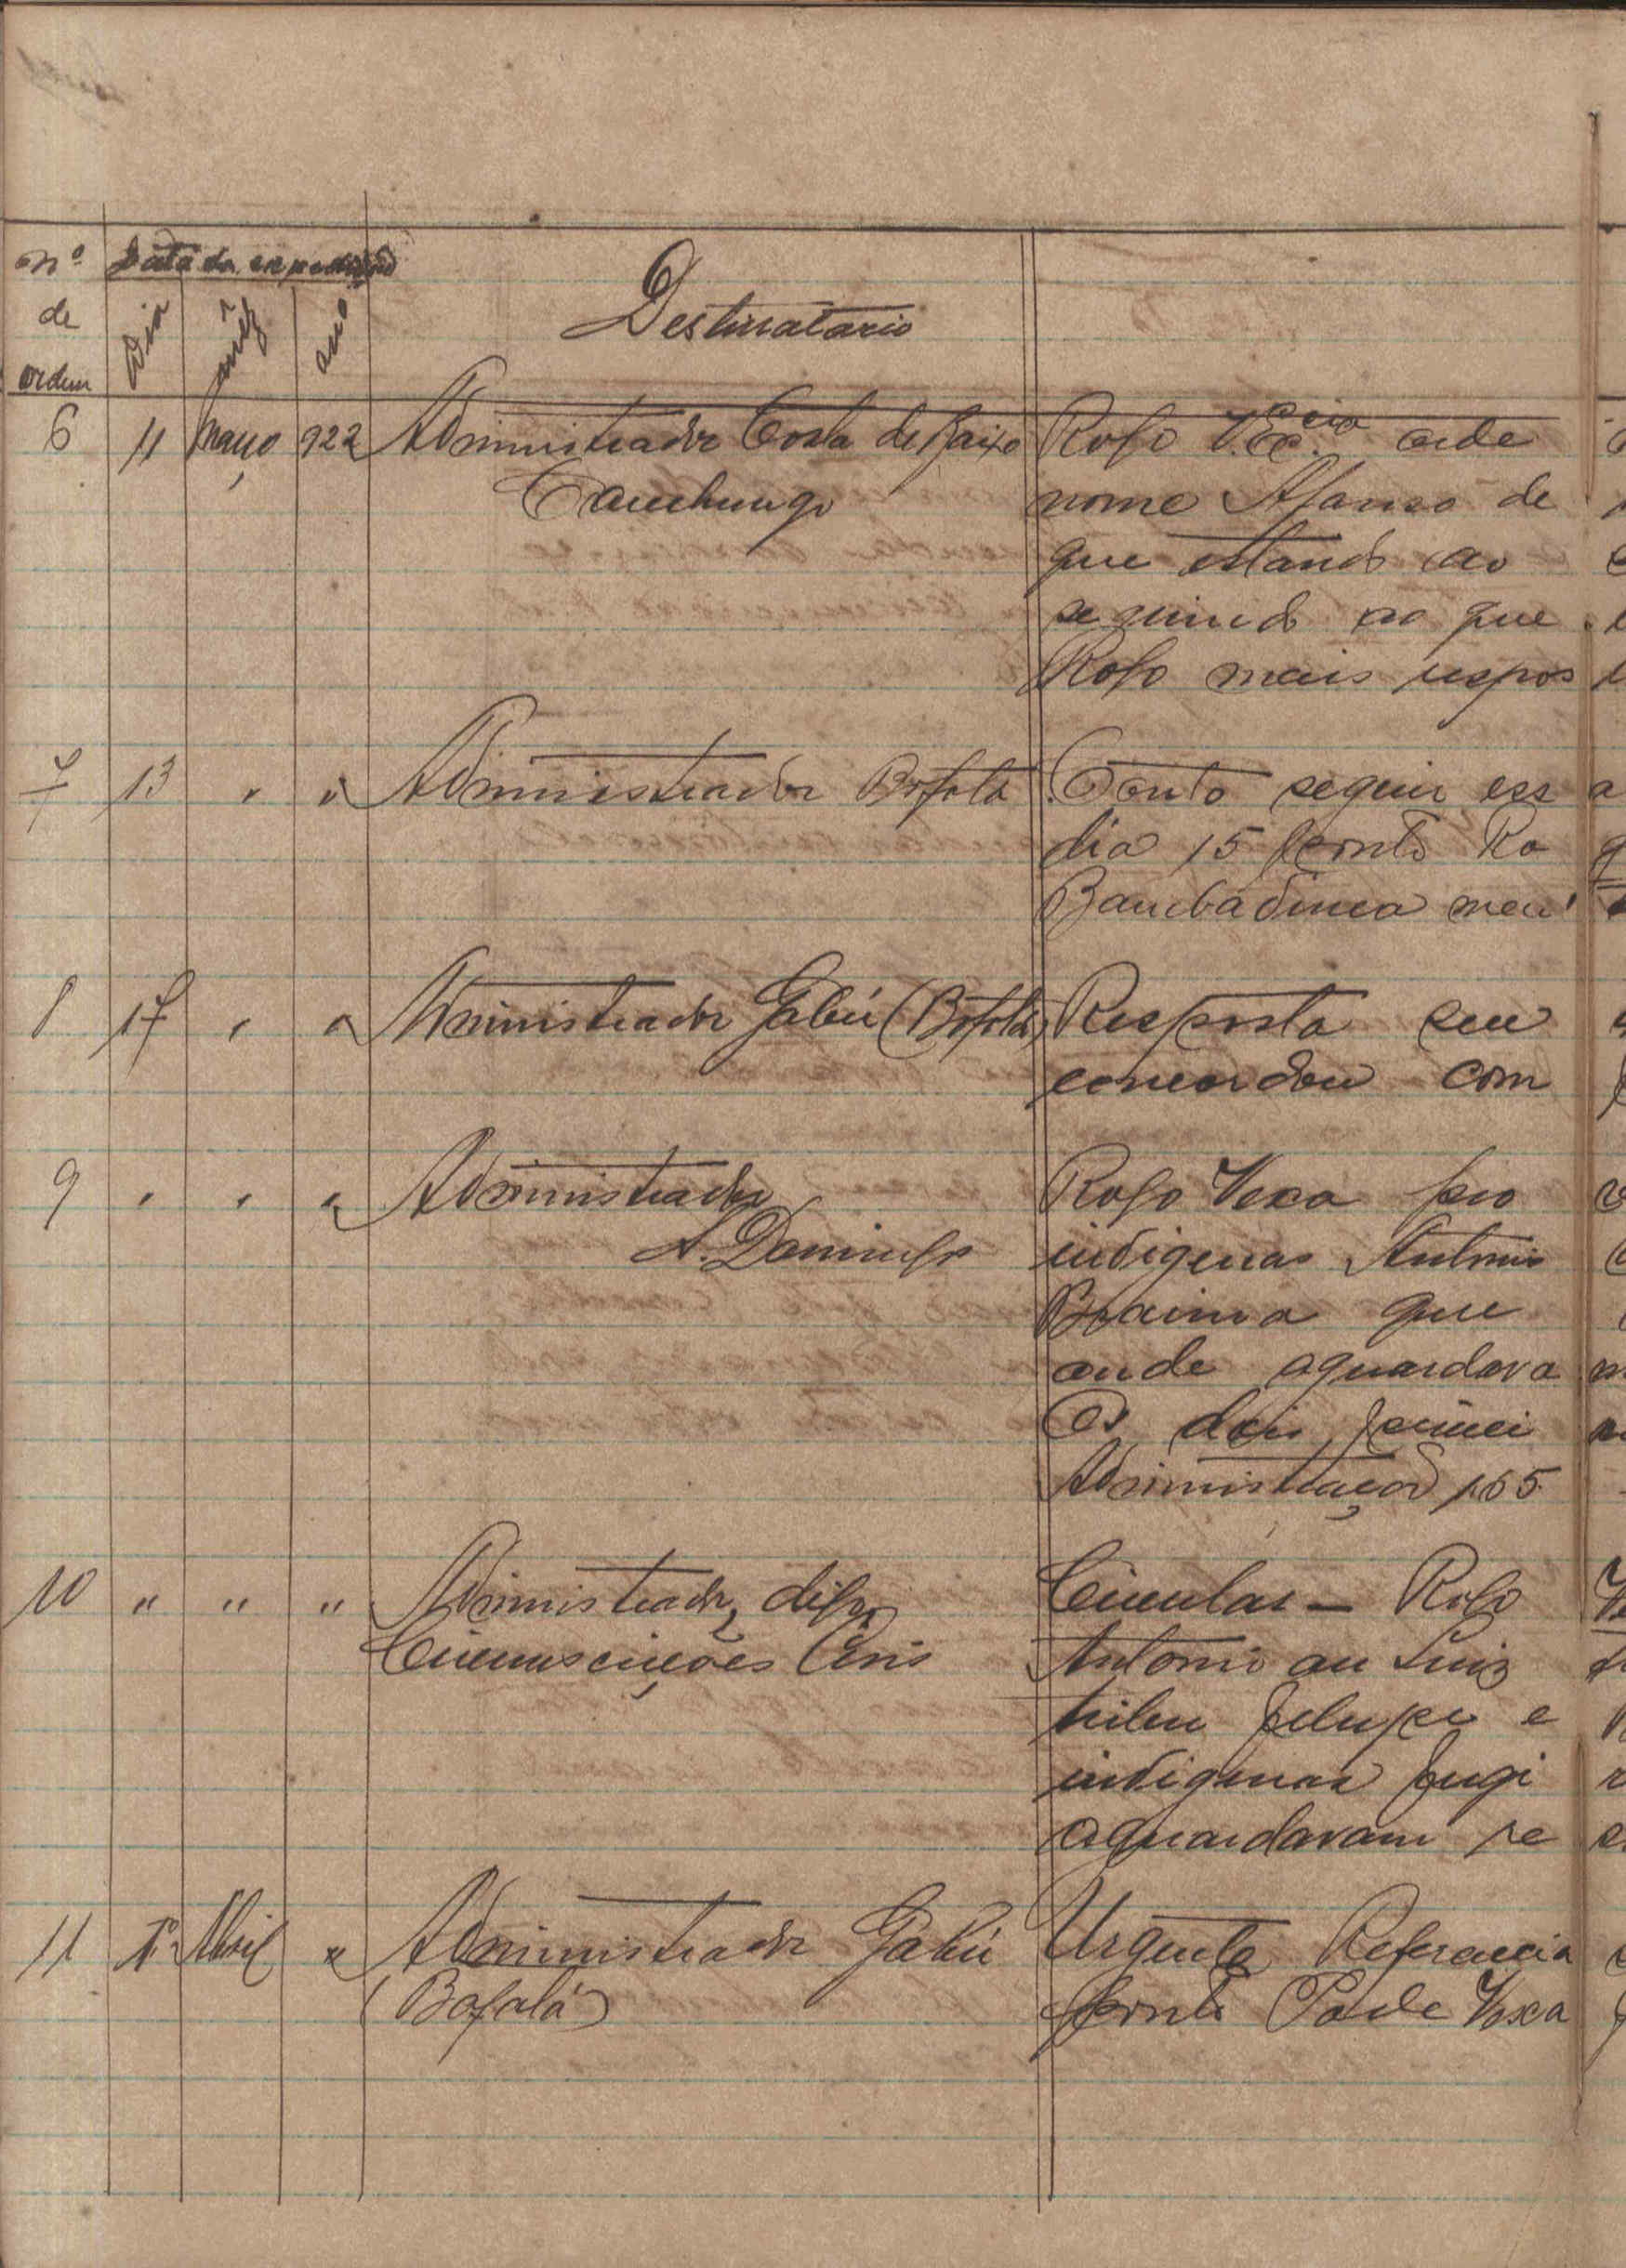 nº de ordem
Data da expedição
Dia
mêz
ano
Destinatario
6 11 Março 922 Administrador Costa de Baixo
Canchungo
Rogo V.Ex.cia orde
nome Afonso de
que estando ao
seguindo ao que
Rogo mais respos
7 13 " " Administrador Bafatá
Conto seguir ess
dia 15 ponto Ro
Bambadinca meu
8 17 " " Administrador Gabú (Bafatá)
Resposta seu
concordou com
9 " " " Administrador
S. Domingos
Rogo Vexa pro
indigenas Antonio
Braima que
onde aguardava
Os dois primei
Administração 165
10 " " " Administrador
Circunscrições Civis
Circular — Rogo
Antonio ou Luiz
tribu felupe e
indigenas fugi
aguardavam re
11 1º Abril " Administrador Gabú
(Bafatá)
Urgente Referencia
ponto Pode Vexa